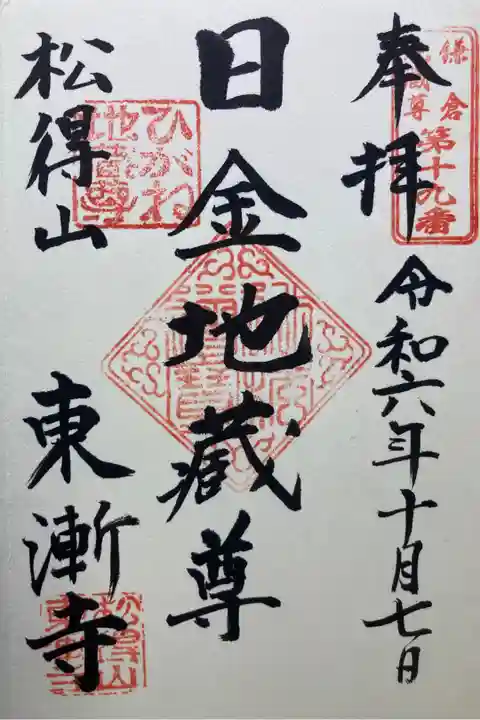 奉拝
鎌倉
地蔵尊
第十九番
令和六年十月七日
日金地蔵尊
ひがね
地蔵尊
松得山
東漸寺
松得山
東漸寺